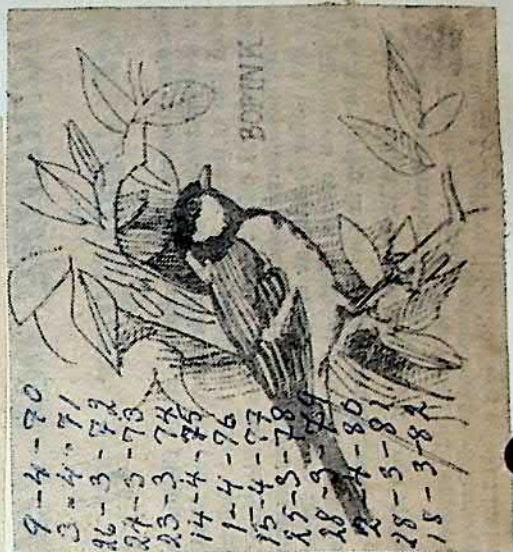 BOFINK
9-4-70
3-4-71
26-3-72
27-3-73
23-3-74
14-4-75
1-4-76
15-4-77
25-3-78
28-3-79
2-4-80
28-3-81
18-3-82